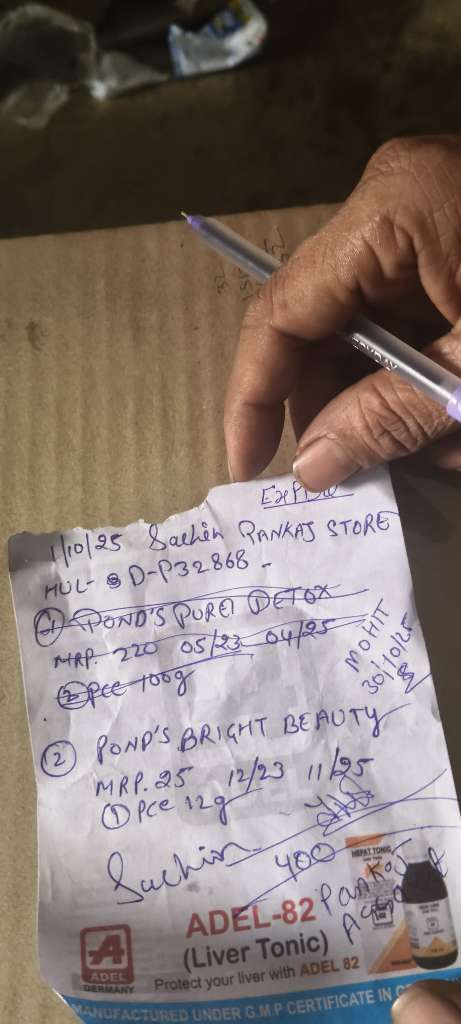 Expire
1/10/25 Sachin PANKAJ STORE
HUL- D-P32868 -
① POND'S PURE DETOX
MRP. 220 05/23 04/25
② Pce 100g
MOHIT
30/10/25
② POND'S BRIGHT BEAUTY
MRP. 25 12/23 11/25
① Pce 12g
Sachin
400
Pankaj
HEPAT TONIC
ADEL-82
(Liver Tonic)
Protect your liver with ADEL 82
A
ADEL
GERMANY
MANUFACTURED UNDER G.M.P CERTIFICATE IN